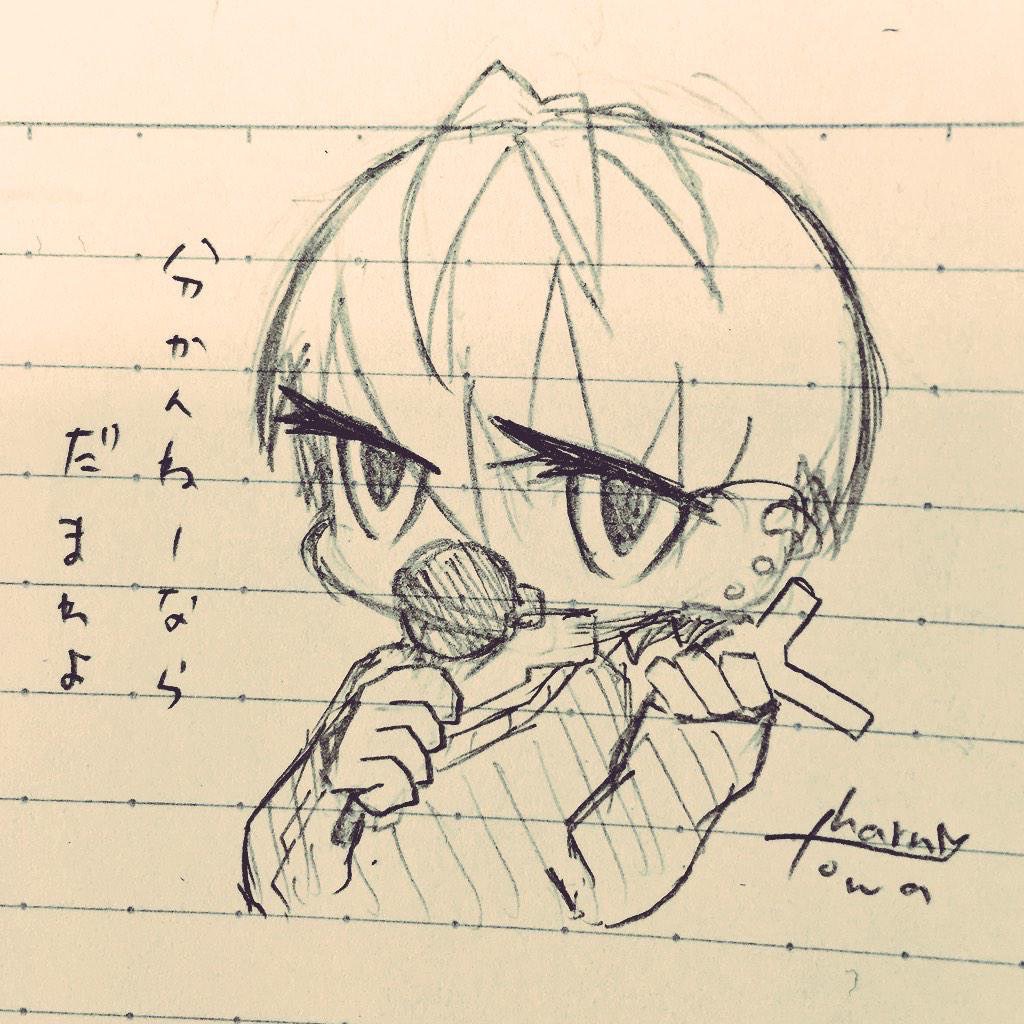 分かんねーなら
だまれよ
haruty
owa